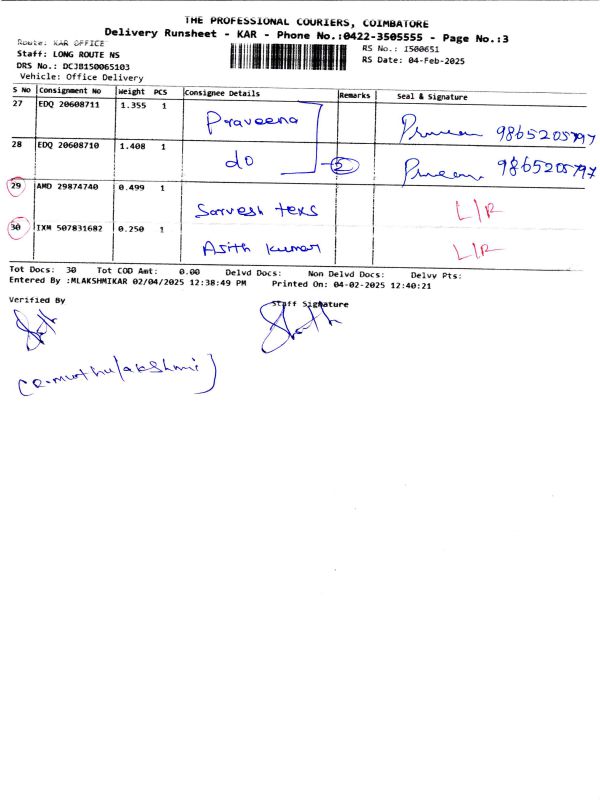 THE PROFESSIONAL COURIERS, COIMBATORE
Delivery Runsheet - KAR - Phone No.:0422-3505555 - Page No.:3
Route: KAR OFFICE
RS No.: I500651
Staff: LONG ROUTE NS
RS Date: 04-Feb-2025
DRS No.: DCJB150065103
Vehicle: Office Delivery
S No Consignment No Weight PCS Consignee Details Remarks Seal & Signature
27 EDQ 20608711 1.355 1 Praveena 9865205797
28 EDQ 20608710 1.408 1 do 2 9865205797
29 AMD 29874740 0.499 1 Sarvesh texs L/R
30 IXM 507831682 0.250 1 Ajith kumar L/R
Tot Docs: 30 Tot COD Amt: 0.00 Delvd Docs: Non Delvd Docs: Delvy Pts:
Entered By :MLAKSHMIKAR 02/04/2025 12:38:49 PM Printed On: 04-02-2025 12:40:21
Verified By Staff Signature
(R.muthulakshmi)